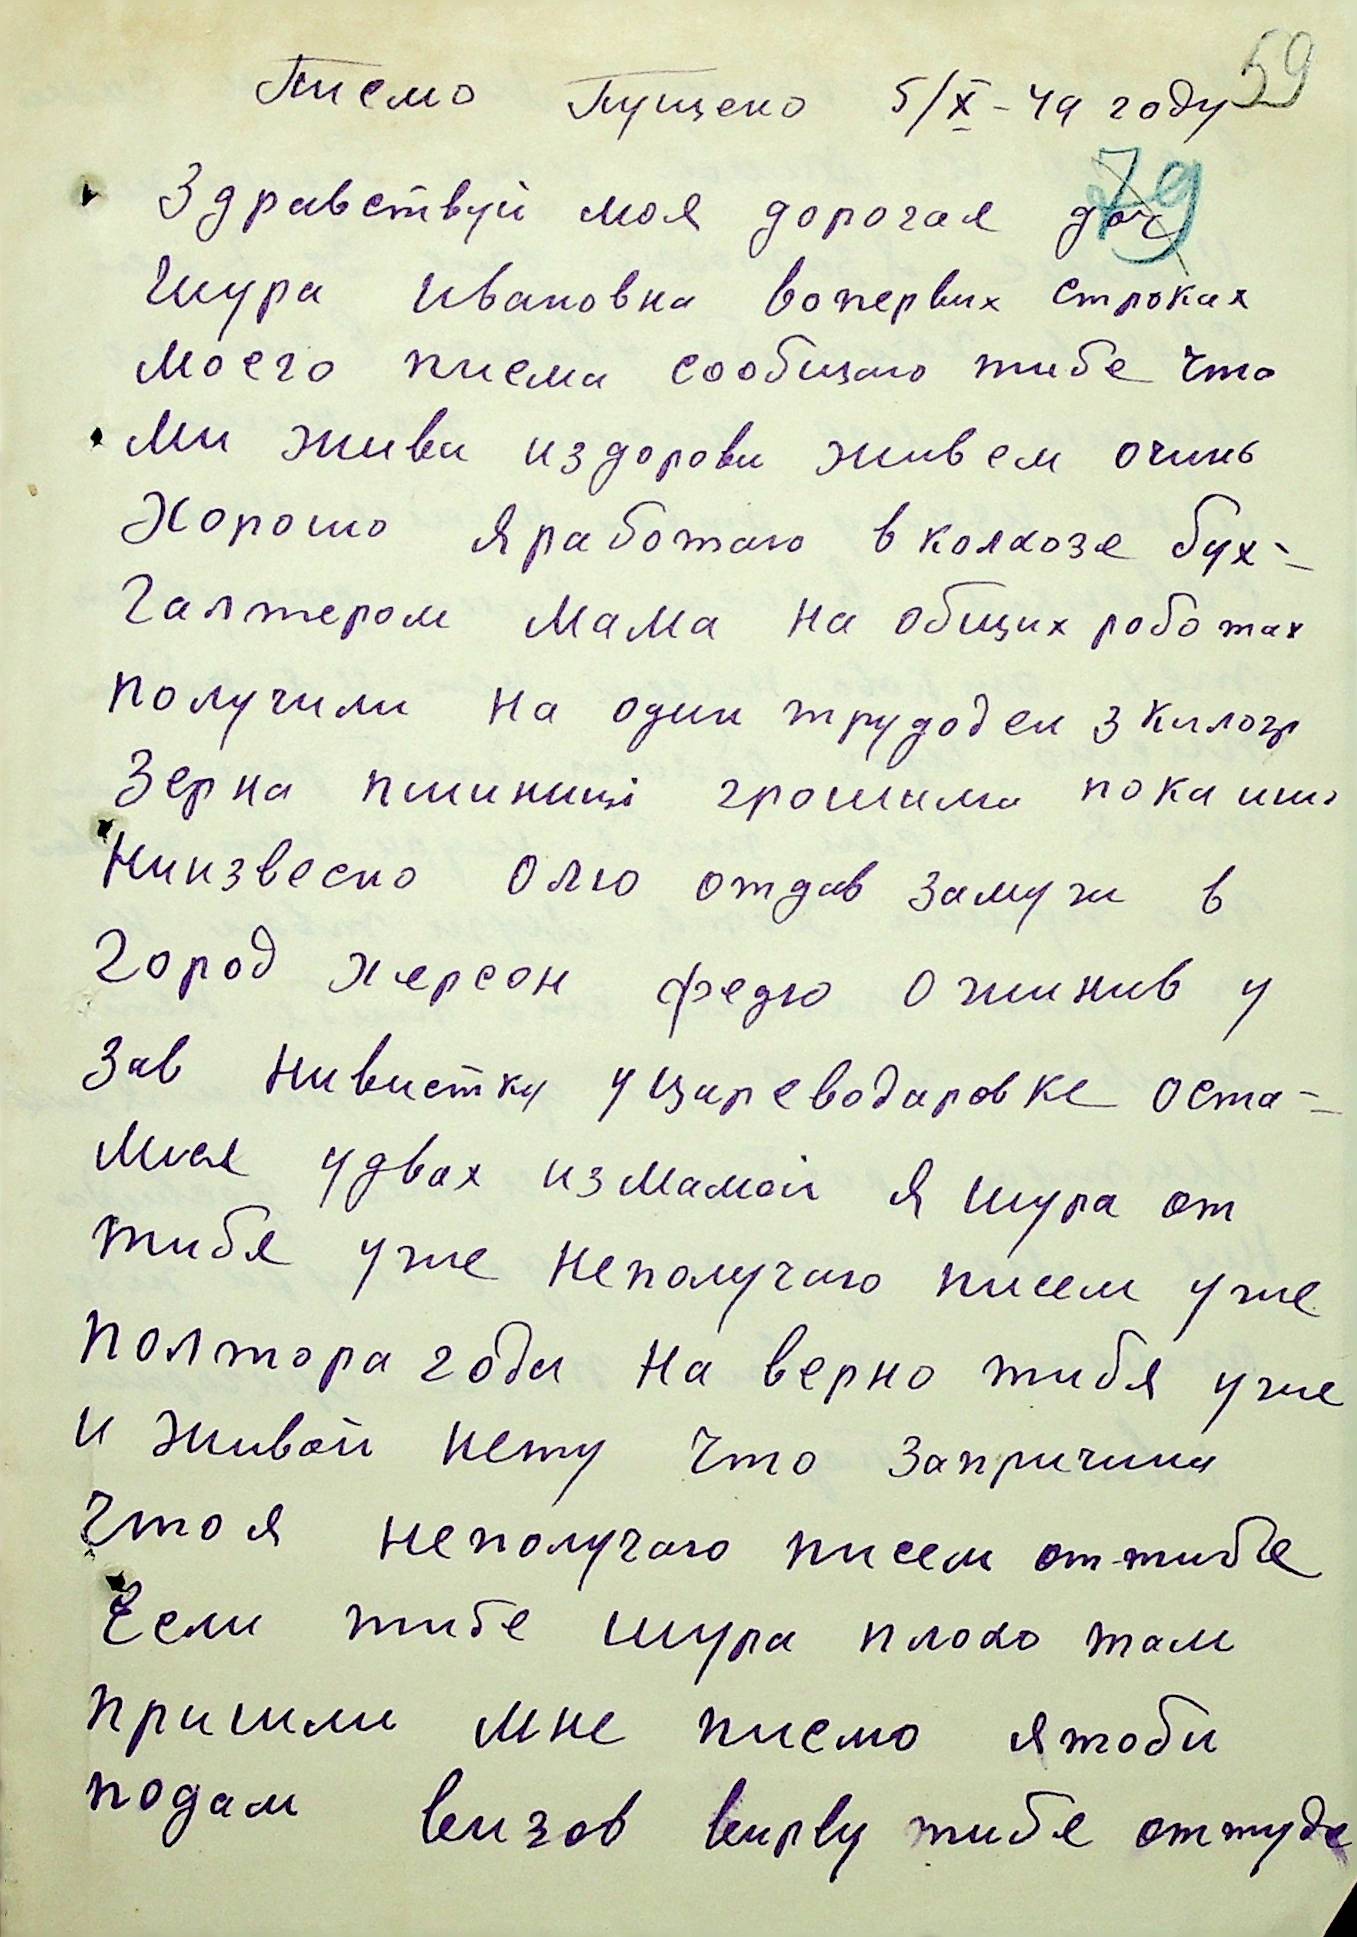 59
Писмо Пущено 5/X - 49 году
79
Здравствуй моя дорогая доч
Шура Ивановна вопервих строках
моего писма сообщаю тибе что
ми живи издорови живем очинь
Хорошо Я работаю в колхозе бух-
галтером мама на общих роботах
получили на один трудоден 3 килогр
Зерна пшиниці грошима пока ишо
Ниизвесно Олю отдав замуж в
Город херсон федю ожинив у
зав нивистку у Цареводаровке оста-
мися удвах измамой я шура от
тибя уже неполучаю писем уже
полтора годи на верно тибя уже
и живой нету что запричина
что я неполучаю писем от тибе
Если тибе шура плохо там
пришли мне писмо я тоби
подам визов вирву тибе оттуде